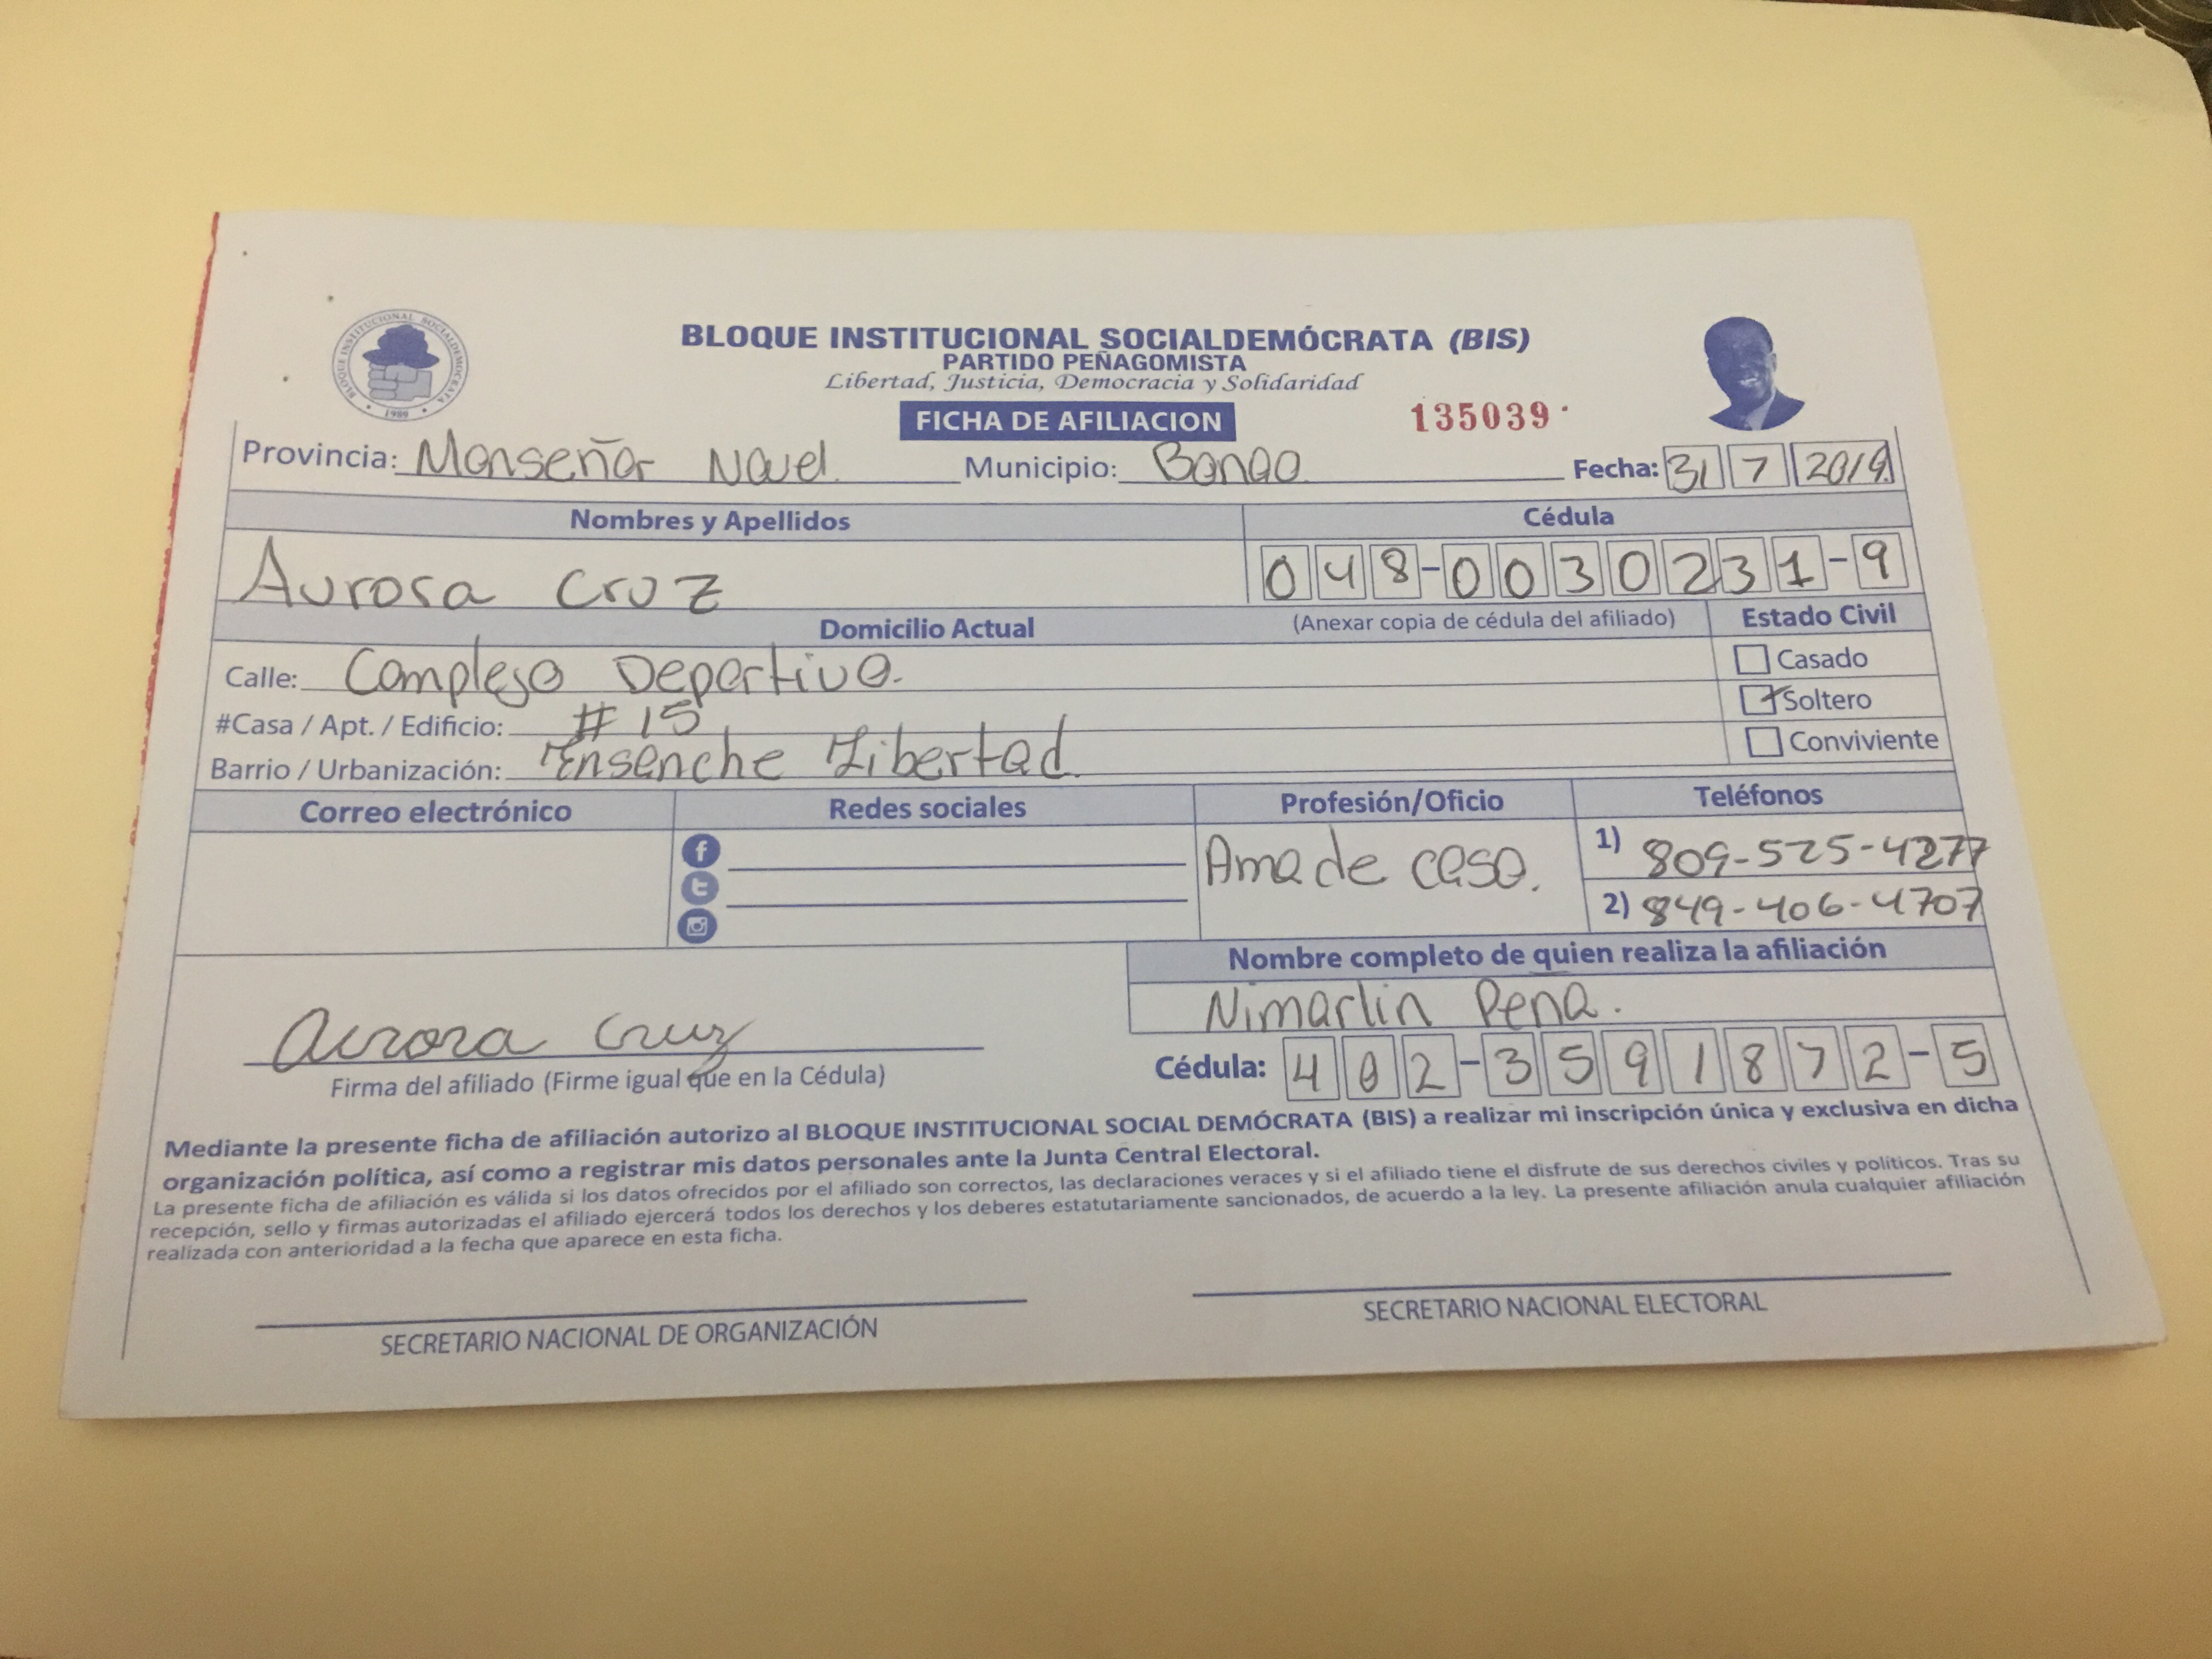 BLOQUE INSTITUCIONAL SOCIALDEMOCRATA
1989
BLOQUE INSTITUCIONAL SOCIALDEMÓCRATA (BIS)
PARTIDO PEÑAGOMISTA
Libertad, Justicia, Democracia y Solidaridad
FICHA DE AFILIACION
135039
Provincia: Monseñor Nouel Municipio: Bonao Fecha: 31 7 2019
Nombres y Apellidos Cédula
Aurora Cruz 048-0030231-9
Domicilio Actual (Anexar copia de cédula del afiliado) Estado Civil
Calle: Complejo Deportivo. Casado
#Casa / Apt. / Edificio: # 15 Soltero
Barrio / Urbanización: Ensanche Libertad. Conviviente
Correo electrónico Redes sociales Profesión/Oficio Teléfonos
Ama de casa. 1) 809-525-4277
2) 849-406-4707
Nombre completo de quien realiza la afiliación
Nimarlin Pena.
Aurora Cruz
Firma del afiliado (Firme igual que en la Cédula) Cédula: 402-3591872-5
Mediante la presente ficha de afiliación autorizo al BLOQUE INSTITUCIONAL SOCIAL DEMÓCRATA (BIS) a realizar mi inscripción única y exclusiva en dicha
organización política, así como a registrar mis datos personales ante la Junta Central Electoral.
La presente ficha de afiliación es válida si los datos ofrecidos por el afiliado son correctos, las declaraciones veraces y si el afiliado tiene el disfrute de sus derechos civiles y políticos. Tras su
recepción, sello y firmas autorizadas el afiliado ejercerá todos los derechos y los deberes estatutariamente sancionados, de acuerdo a la ley. La presente afiliación anula cualquier afiliación
realizada con anterioridad a la fecha que aparece en esta ficha.
SECRETARIO NACIONAL DE ORGANIZACIÓN SECRETARIO NACIONAL ELECTORAL